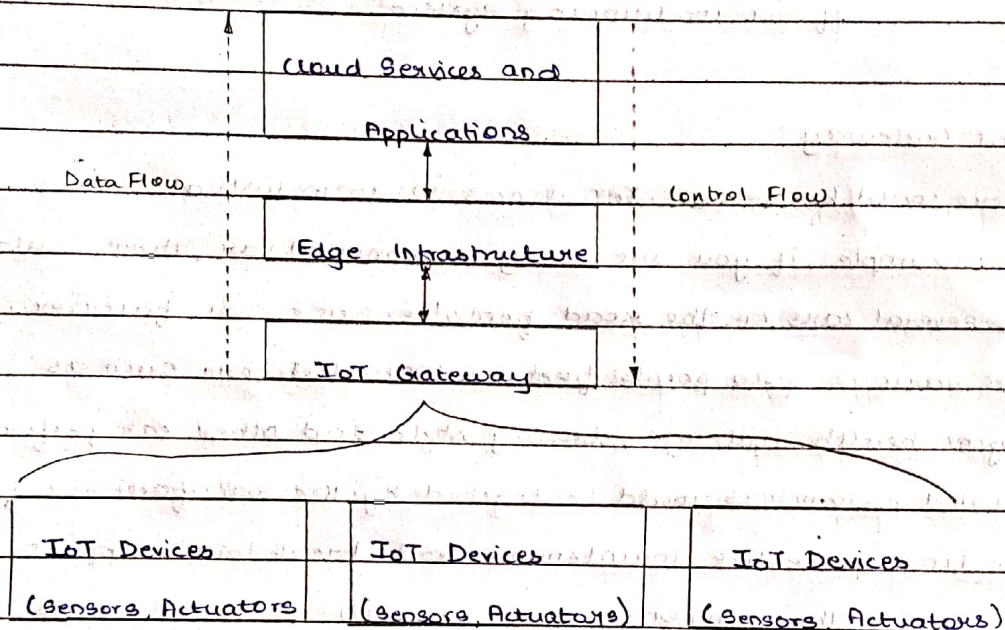 Cloud Services and
Applications
Data Flow
Control Flow
Edge Infrastructure
IoT Gateway
IoT Devices
(Sensors, Actuators
IoT Devices
(Sensors, Actuators)
IoT Devices
(Sensors, Actuators)